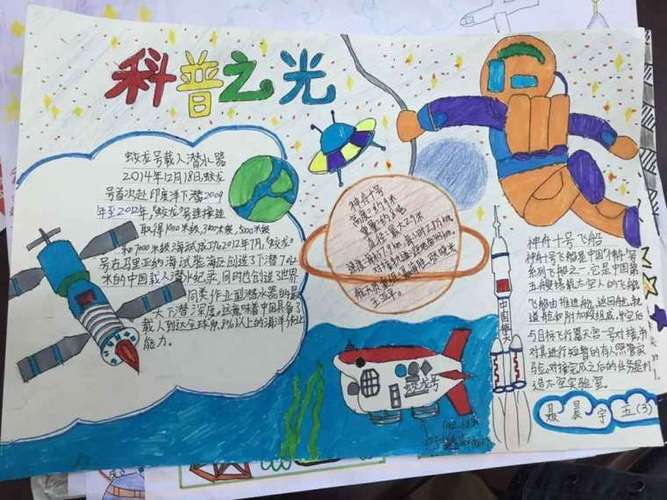 科普之光
蛟龙号载人潜水器
2014年12月18日,蛟龙
号首次赴印度洋下潜2009
年至2012年,"蛟龙"号连接连
取得1000米级,3000米级,5000米级
和7000米级海试成功2012年7月,"蛟龙"
号在马里亚纳海试
米的中国载人潜水纪录,同时也创造了世界
同类作业型潜水器的最
大下潜深度。这意味着中国具备了
载人到达全球99.8%以上的海洋作业
能力。
神舟十号
神舟十号飞船
神舟十号飞船是中国"神舟"号
系列飞船之一,它是中国第
五艘搭载太空人的飞船
飞船由推进舱,返回舱,轨
道舱和附加段组成。升空后
与目标飞行器天宫一号对接,并
对其进行短暂的有人照管实
验。对接完成之后的任务是打
造太空实验室。
中国航天
蛟龙号
聂晨宇 五(3)